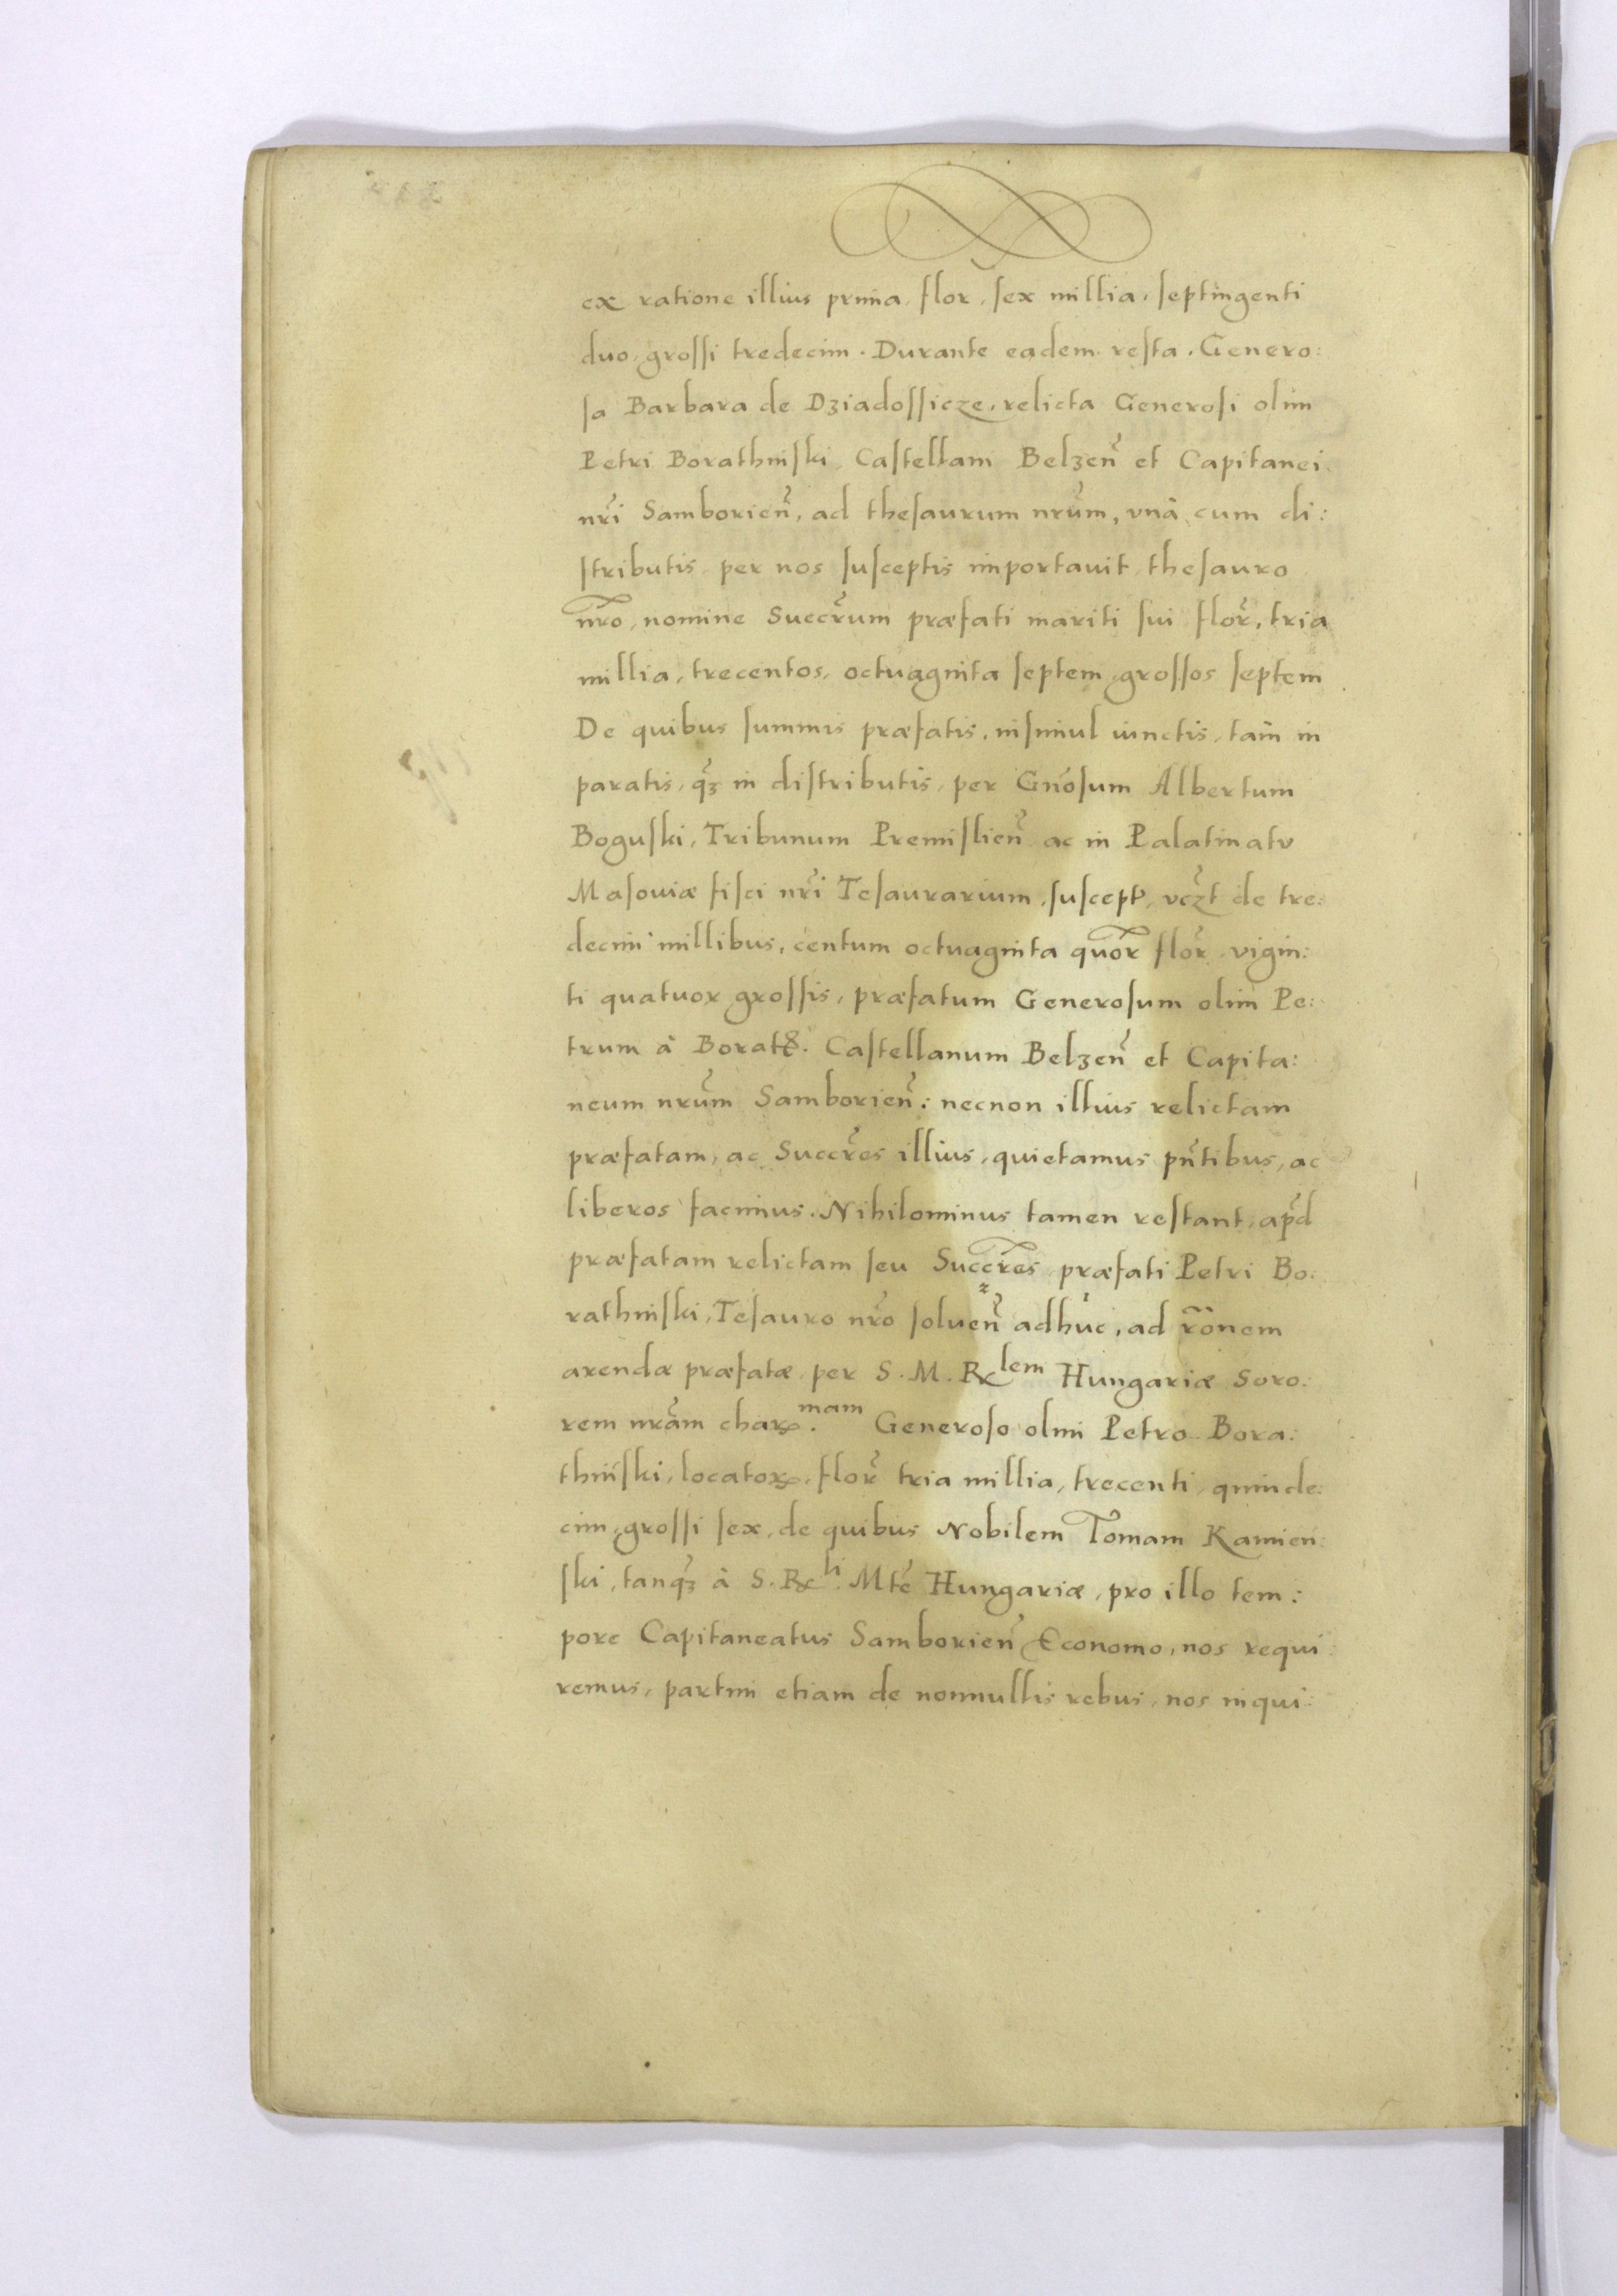 ex ratione illius prima, flor, sex millia, septingenti
duo, grossi tredecim. Durante eadem resta. Genero:
sa Barbara de Dziadossicze, relicta Generosi olim
Petri Borathinski, Castellani Belzen̄ et Capitanei
nr̄i Samborien̄, ad thesaurum nrūm, vnà cum di:
stributis per nos susceptis importauit, thesauro
nr̄o, nomine Succr̄um præfati mariti sui flor̄, tria
millia, trecentos, octuaginta septem, grossos septem
De quibus summis præfatis, insimul iunctis, tam̄ in
paratis, q̄ꝫ in distributis, per Gnōsum Albertum
Boguski, Tribunum Premislien̄ ac in Palatinatu
Masouiæ fisci nr̄i Tesaurarium, suscept, vczt de tre:
decim millibus, centum octuaginta quor̄ flor̄ vigin:
ti quatuor grossis, præfatum Generosum olim Pe:
trum à Borat. Castellanum Belzen̄ et Capita:
neum nrūm Samborien̄: necnon illius relictam
præfatam, ac Succr̄es illius, quietamus pn̄tibus, ac
liberos facimus. Nihilominus tamen restant, apd̄
præfatam relictam seu Succr̄es præfati Petri Bo:
rathinski, Tesauro nr̄o soluen̄ adhuc, ad rōnem
arendæ præfatæ per S. M. Rlem Hungariæ Soro:
rem nrām char.mam Generoso olim Petro Bora:
thinski, locator. flor̄ tria millia, trecenti quinde:
cim, grossi sex, de quibus Nobilem Tomam Kamien:
ski, tanq̄ꝫ à S. Rli. Mtē Hungariæ, pro illo tem:
pore Capitaneatus Samborien̄ Economo, nos requi:
remus, partim etiam de nonnullis rebus, nos inqui: